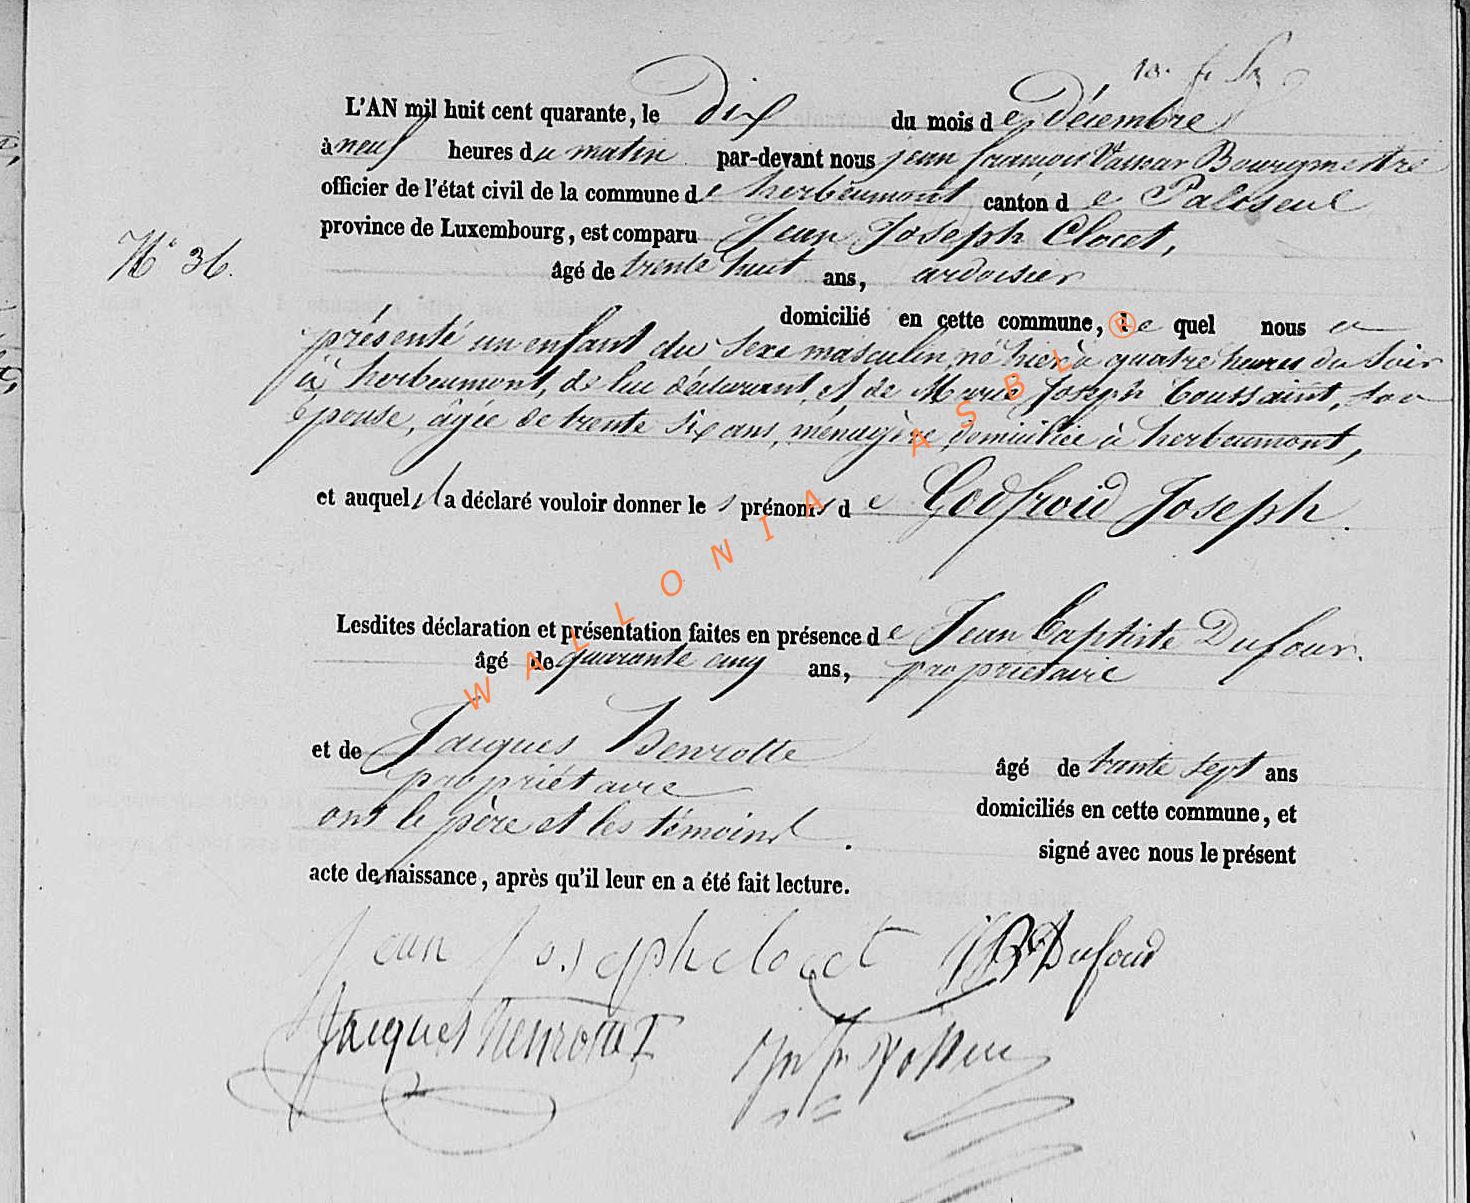 L'AN mil huit cent quarante, le dix du mois de Décembre
à neuf heures du matin par-devant nous jean françois Bourgmestre
officier de l'état civil de la commune de herbeumont canton de Paliseul
province de Luxembourg, est comparu Jean Joseph Clocet,
N° 36.
âgé de trente huit ans, ardoisier
domicilié en cette commune, le quel nous a
présenté un enfant du sexe masculin, né hier à quatre heures du soir
à herbeumont, de lui déclarant, et de Marie Joseph Toussaint, son
épouse, âgée de trente six ans, ménagère, domiciliée à herbeumont,
et auquel il a déclaré vouloir donner les prénoms de Godfroid Joseph.
Lesdites déclaration et présentation faites en présence de Jean Baptiste Dufour.
âgé de quarante cinq ans, propriétaire
et de Jacques henrotte âgé de trente sept ans
propriétaire
domiciliés en cette commune, et
ont le père et les témoins
signé avec nous le présent
acte de naissance, après qu'il leur en a été fait lecture.
jean joseph clocet JB Dufour
Jacques henrotte
WALLONIA ASBL ®